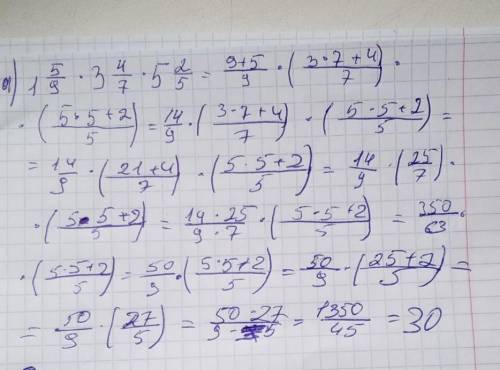 а) 1 5/9 · 3 4/7 · 5 2/5 = 9+5/9 · (3·7+4/7) ·
· (5·5+2/5) = 14/9 · (3·7+4/7) · (5·5+2/5) =
= 14/9 · (21+4/7) · (5·5+2/5) = 14/9 · (25/7) ·
· (5·5+2/5) = 14·25/9·7 · (5·5+2/5) = 350/63 ·
· (5·5+2/5) = 50/9 · (5·5+2/5) = 50/9 · (25+2/5) =
= 50/9 · (27/5) = 50·27/9·5 = 1350/45 = 30